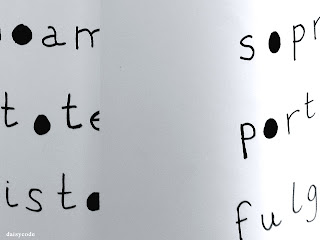 oam
tote
ista
sopr
port
fulg
daisycode